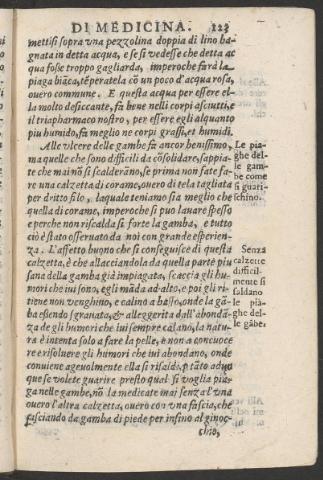 DI MEDICINA. 123
mettisi sopra vna pezzolina doppia di lino ba-
gnata in detta acqua, e se si vedesse che detta ac
qua fosse troppo gagliarda, imperoche farà la
piaga biāca, tēperatela cō un poco d'acqua rosa,
ouero commune. E questa acqua per essere el-
la molto desiccante, fa bene nelli corpi asciutti, e
il triapharmaco nostro, per essere egli alquanto
piu humido, fa meglio ne corpi grassi, et humidi.
Alle vlcere delle gambe fa ancor benissimo,
ma quelle che sono difficili da cōsolidare, sappia-
te che mai nō si scalderāno, se prima non fate fa-
re una calzetta di corame, ouero di tela tagliata
per dritto filo, laquale teniamo sia meglio che
quella di corame, imperoche si può lauare spesso
e perche non riscalda sì forte la gamba, e tutto
ciò è stato osseruato da noi con grande esperien-
za. L'affetto buono che si conseguisce di questa
calzetta, è che allacciandola da quella parte piu
sana della gamba già impiagata, scaccia gli hu-
mori che iui sono, egli māda ad alto, e poi gli ri-
tiene non venghino, e calino a basso, onde la gā-
ba essendo sgranata, & alleggerita dall'abondā-
za de gli humori che iui sempre calano, la natu-
ra è intenta solo a fare la pelle, e non a concuoce
re e risoluere gli humori che iui abondano, onde
conuiene ageuolmente ella si risaldi. p tāto adūq
que se volete guarire presto qual si voglia pia-
ga nelle gambe, nō la medicate mai senza l'vna
ouero l'altra calzetta, ouero con vna fascia, che
fasciando da gamba di piede per insino al ginoc-
chio,
Le pia-
ghe del-
le gam-
be come
si guari-
schino.
Senza
calzette
difficil-
mente si
saldano
le pia-
ghe del-
le gābe.